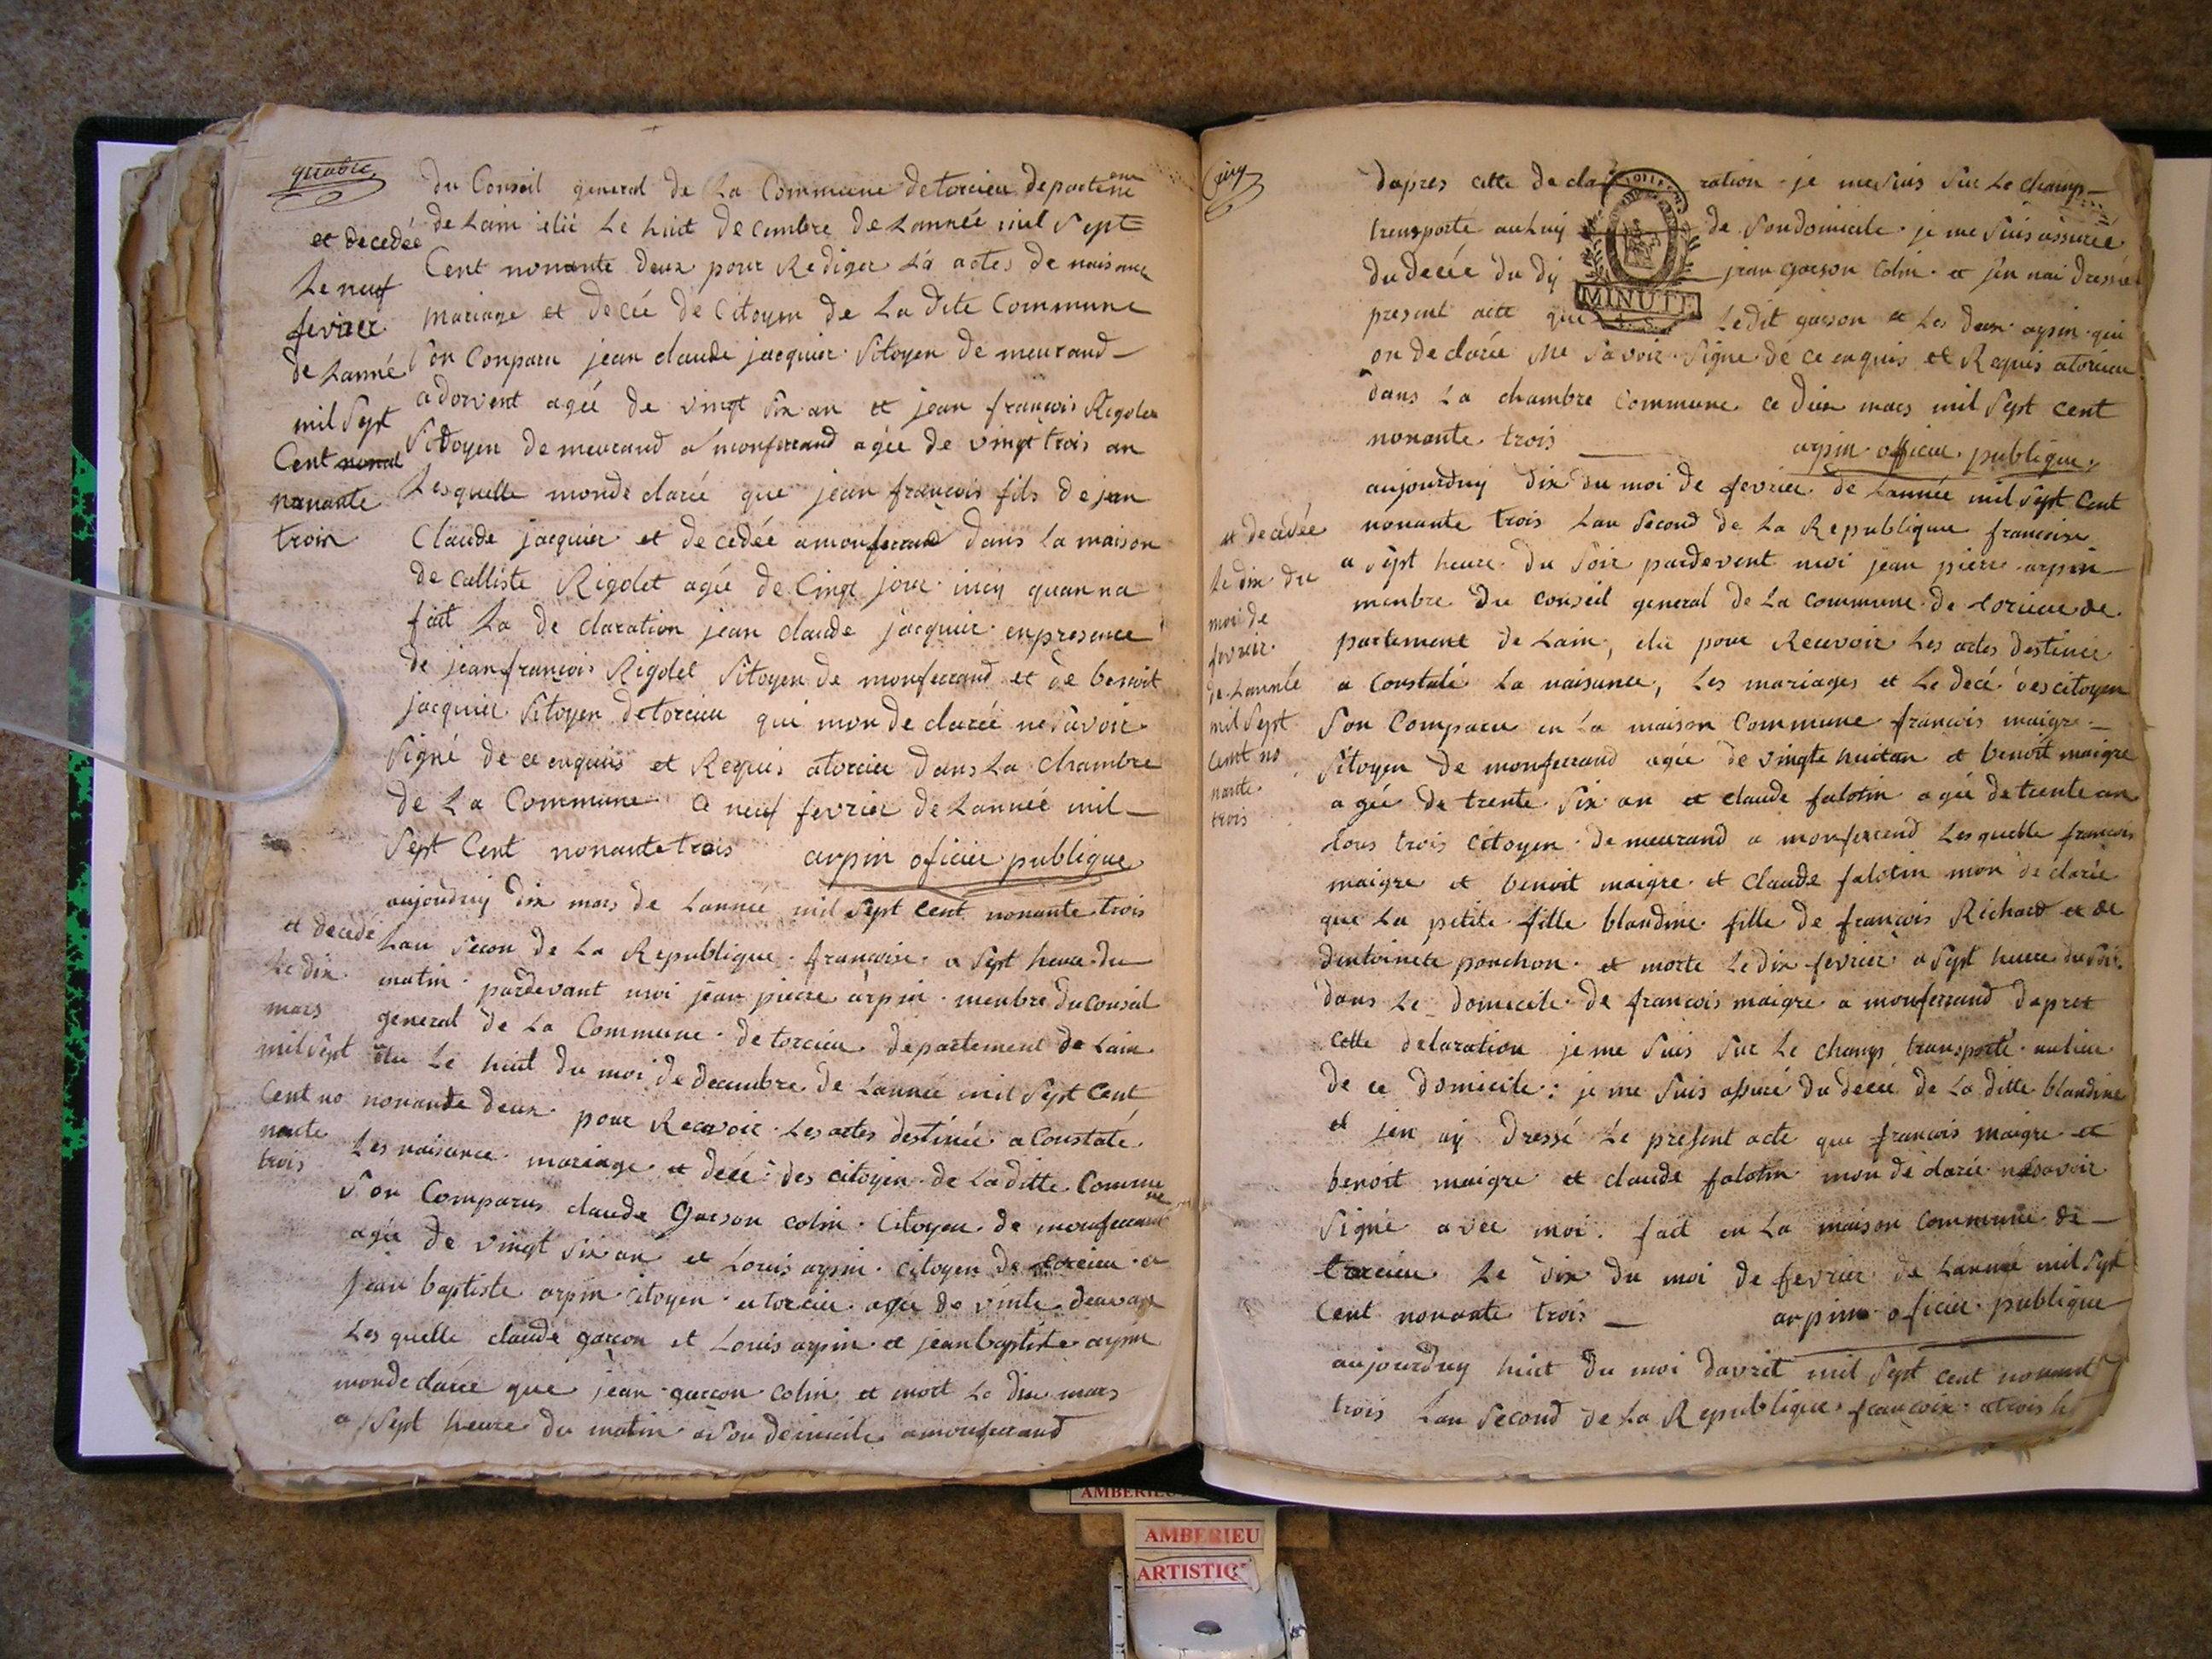 quatre
du Conseil general de La Commune detorcieu departeme
ne
et decedée
Le neuf
fevrier
de Lanné
mil Sept
Cent nonal
nonante
trois
de Lain élié Le huit decembre de Lannéé mil Sept
Cent nonante deux pour Rediger Lá actes de naisance
mariage et decéé de Citoyen de La dite Commune
Son Conparu jean claude jacquier Sitoyen de meurand
adorvent ageé de vingt Six an et jean francois Rigolet
Sitoyen demeurand a monferrand agée de vingt trois an
Lesquelle monde clareé que jean francois fils de jean
Claude jacquier et de cedéé amonferrand dans la maison
de calliste Rigolet ageé de Cinqt jour incy quan na
fait La de claration jean claude jacquier enpresence
de jeanfrançois Rigolet Sitoyen de monferrand et de benoit
jacquier Sitoyen detorcieu qui mon de clareé ne Savoir
Signé de ce enquis et Requis atorcieu dans La Chambre
de La Commune Ce neuf fevrier de Lanneé mil
Sept Cent nonante trois arpin oficier publique
et decedé
Le dix
mars
mil Sept
Cent no
nante
trois
aujourduy dix mars de Lannee mil Sept Cent nonante trois
Lan Secon de La Republique francoise a Sept heure du
matin pardevant moi jean pierre arpin menbre du Conseil
general de La Commune de torcieu departement de Lain
élu Le huit du moi de decembre de Lanneé mil Sept Cent
nonante deux pour Recevoir Les actes destineé a Constaté
Les naisance mariage et deceé des citoyen de La ditte Commu
ne
Son Comparus claude Garson colin Citoyen de monferrand
ageé de vingt Six an et Louis arpin Citoyen de torcieu et
jean baptiste arpin citoyen a torcieu ageé de vinte deux an
Les quelle claude garcon et Louis arpin et jean baptiste arpin
monde clareé que jean garcon colin et mort Le dix mars
a Sept heure du matin a Son domicile amonferrand
Cinq
dapres cette de cla ration je me Suis Sur Le champ
transporté au Luy de Son domicile je me Suis assureé
du deceé du dy jean garson colin et jen nai dresseé
MINUTE
present acte que Ledit garson et Les deux arpin qui
on de clareé ne Savoir Signe de ce enquis et Requis atorcieu
dans La chambre Commune ce dix mars mil Sept cent
nonante trois arpin officier publique
et decedée
Le dix du
moi de
fevrier
de Lannéé
mil Sept
Cent no
nante
trois
aujourduy dix du moi de fevrier de Lannéé mil Sept Cent
nonante trois Lan Second de La Republique francoise
a Sept heure du Soir pardevent moi jean pierre arpin
menbre du Conseil general de La Commune de torcieu de
partement de Lain, elu pour Recevoir Les actes destineé
a Constaté La naisance, Les mariages et Le decé des citoyen
Son Comparu en La maison Commune francois maigre
Sitoyen de monferrand ageé de vingte huitan et benoit maigre
ageé de trente Six an et claude falotin ageé de trente an
tous trois Citoyen demeurand a monferrend Les quelle francois
maigre et benoit maigre et Claude falotin mon de clareé
que La petite fille blandine fille de francois Richard et de
dantoinete ponchon et morte Le dix fevrier a Sept heure du Soir
dans Le domecile de francois maigre a monferrand dapret
Cette delaration je me Suis Sur Le champ transporté au lieu
de ce domicile : je me Suis assuré du deceé de La ditte blandine
et jen ay dressé Le present acte que francois maigre et
benoit maigre et claude falotin mon de clareé ne Savoir
Signé avec moi. fait en La maison Commune de
torcieu Le dix du moi de fevrier de Lanneé mil Sept
Cent nonante trois arpin oficier publique
aujourduy huit du moi davril mil Sept cent nonant
trois Lan Second de La Republique francoise a trois h
AMBERIEU
AMBERIEU
ARTISTIQ